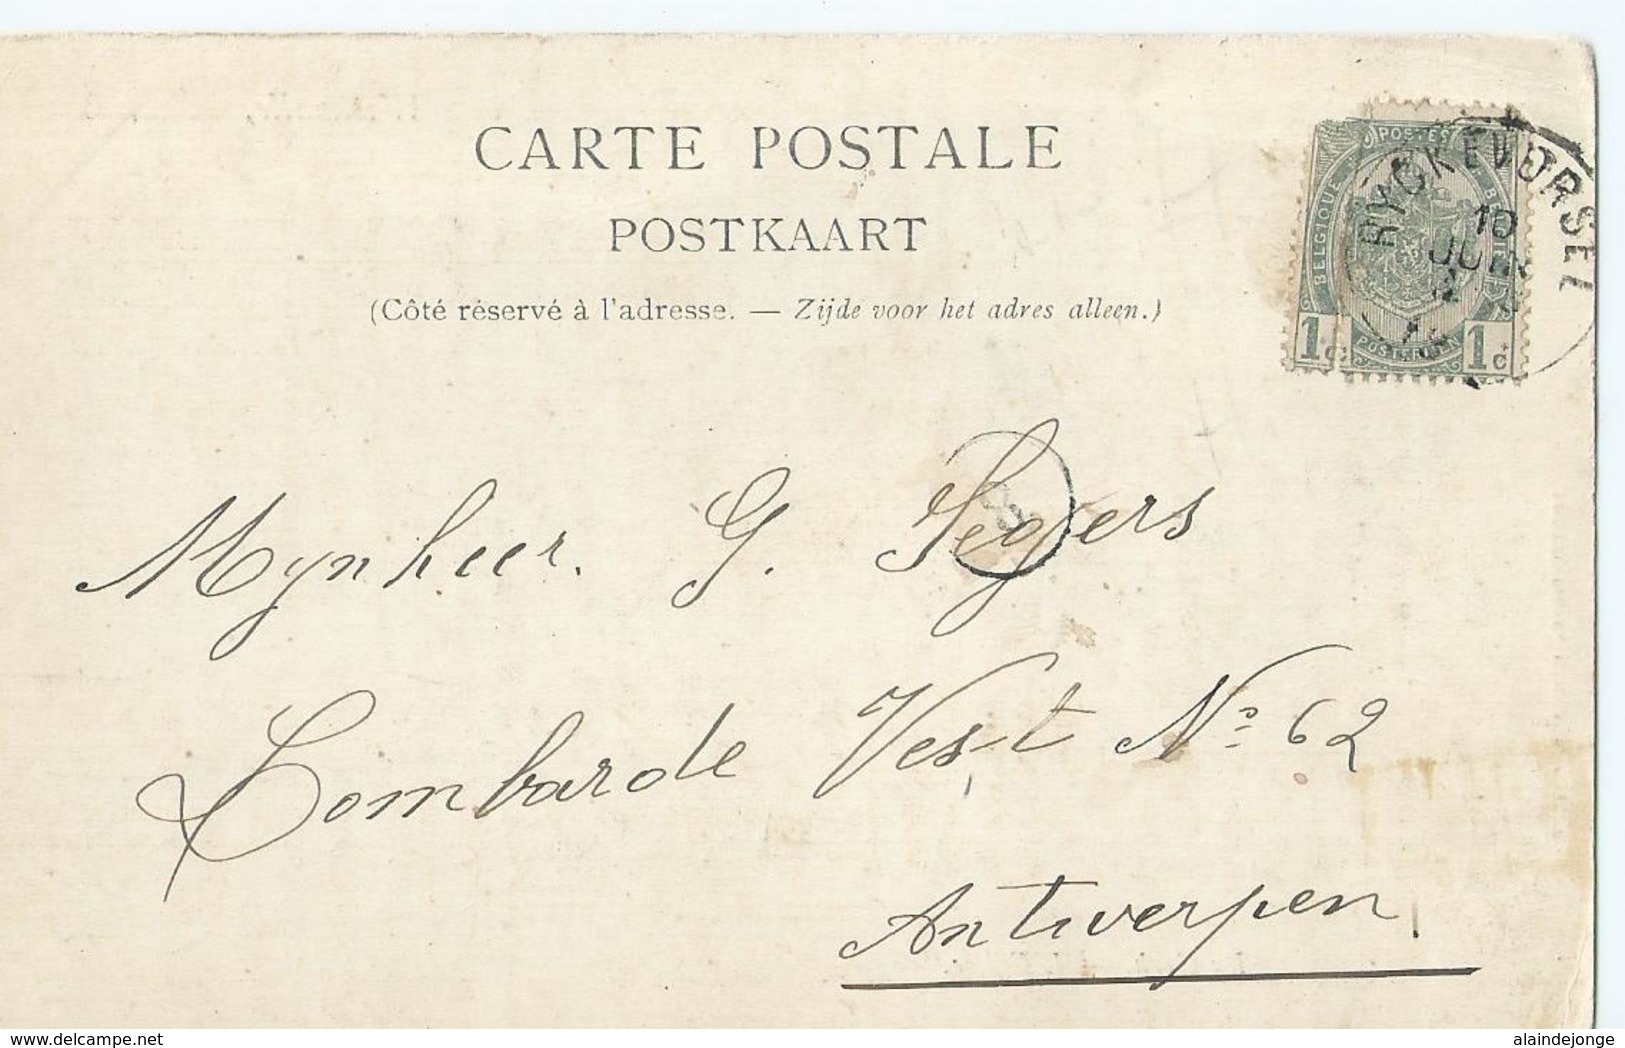 CARTE POSTALE
POSTKAART
(Côté réservé à l'adresse. — Zijde voor het adres alleen.)
POSTES
BELGIQUE
1c 1c
RYCKEVORSEL
10
JUIN
Mynheer. G. Segers
Lombarde Vest No 62
Antwerpen
www.delcampe.net
alaindejonge